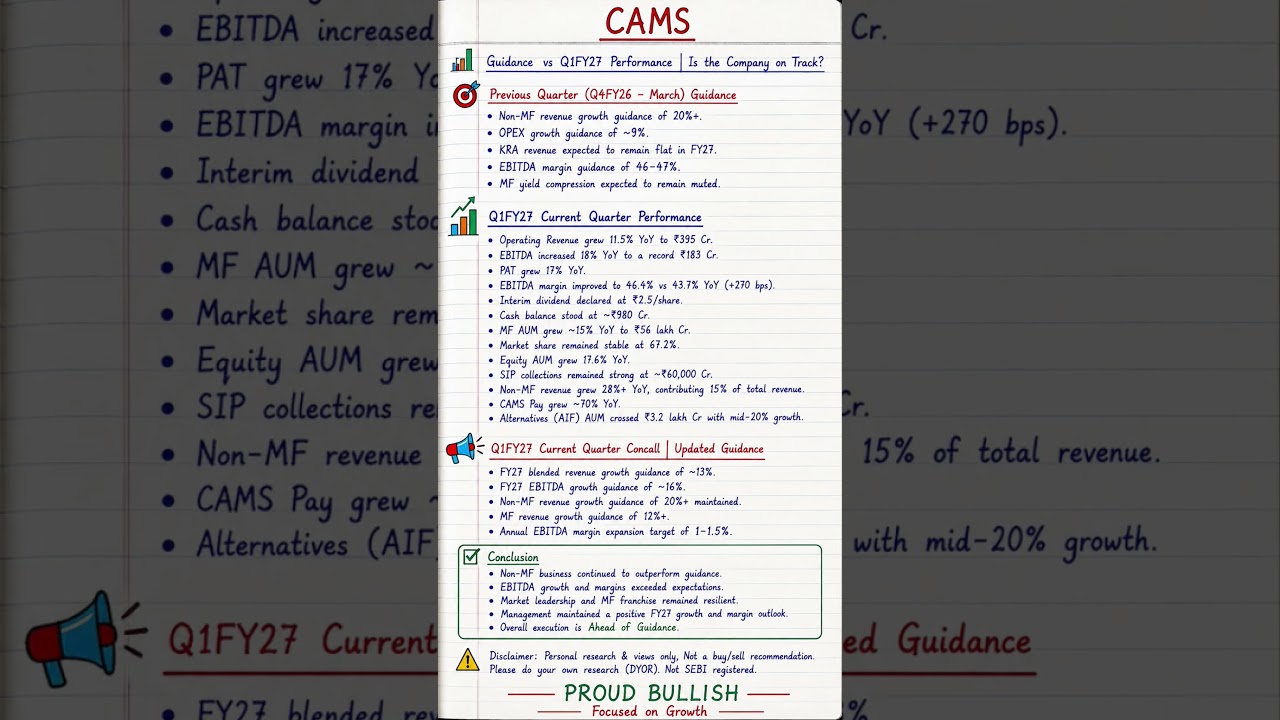 CAMS
Guidance vs Q1FY27 Performance | Is the Company on Track?
Previous Quarter (Q4FY26 – March) Guidance
• Non-MF revenue growth guidance of 20%+.
• OPEX growth guidance of ~9%.
• KRA revenue expected to remain flat in FY27.
• EBITDA margin guidance of 46–47%.
• MF yield compression expected to remain muted.
Q1FY27 Current Quarter Performance
• Operating Revenue grew 11.5% YoY to ₹395 Cr.
• EBITDA increased 18% YoY to a record ₹183 Cr.
• PAT grew 17% YoY.
• EBITDA margin improved to 46.4% vs 43.7% YoY (+270 bps).
• Interim dividend declared at ₹2.5/share.
• Cash balance stood at ~₹980 Cr.
• MF AUM grew ~15% YoY to ₹56 lakh Cr.
• Market share remained stable at 67.2%.
• Equity AUM grew 17.6% YoY.
• SIP collections remained strong at ~₹60,000 Cr.
• Non-MF revenue grew 28%+ YoY, contributing 15% of total revenue.
• CAMS Pay grew ~70% YoY.
• Alternatives (AIF) AUM crossed ₹3.2 lakh Cr with mid-20% growth.
Q1FY27 Current Quarter Concall | Updated Guidance
• FY27 blended revenue growth guidance of ~13%.
• FY27 EBITDA growth guidance of ~16%.
• Non-MF revenue growth guidance of 20%+ maintained.
• MF revenue growth guidance of 12%+.
• Annual EBITDA margin expansion target of 1–1.5%.
Conclusion
• Non-MF business continued to outperform guidance.
• EBITDA growth and margins exceeded expectations.
• Market leadership and MF franchise remained resilient.
• Management maintained a positive FY27 growth and margin outlook.
• Overall execution is Ahead of Guidance.
Disclaimer: Personal research & views only, Not a buy/sell recommendation.
Please do your own research (DYOR). Not SEBI registered.
PROUD BULLISH
Focused on Growth
• EBITDA increased
Cr.
• PAT grew 17% Yo
• EBITDA margin
YoY (+270 bps).
• Interim dividend
• Cash balance
• MF AUM grew ~
• Market share
• Equity AUM grew
• SIP collections
Cr.
• Non-MF revenue
15% of total revenue.
• CAMS Pay grew ~
• Alternatives (AIF)
with mid-20% growth.
Q1FY27 Current
Guidance
• FY27 blended